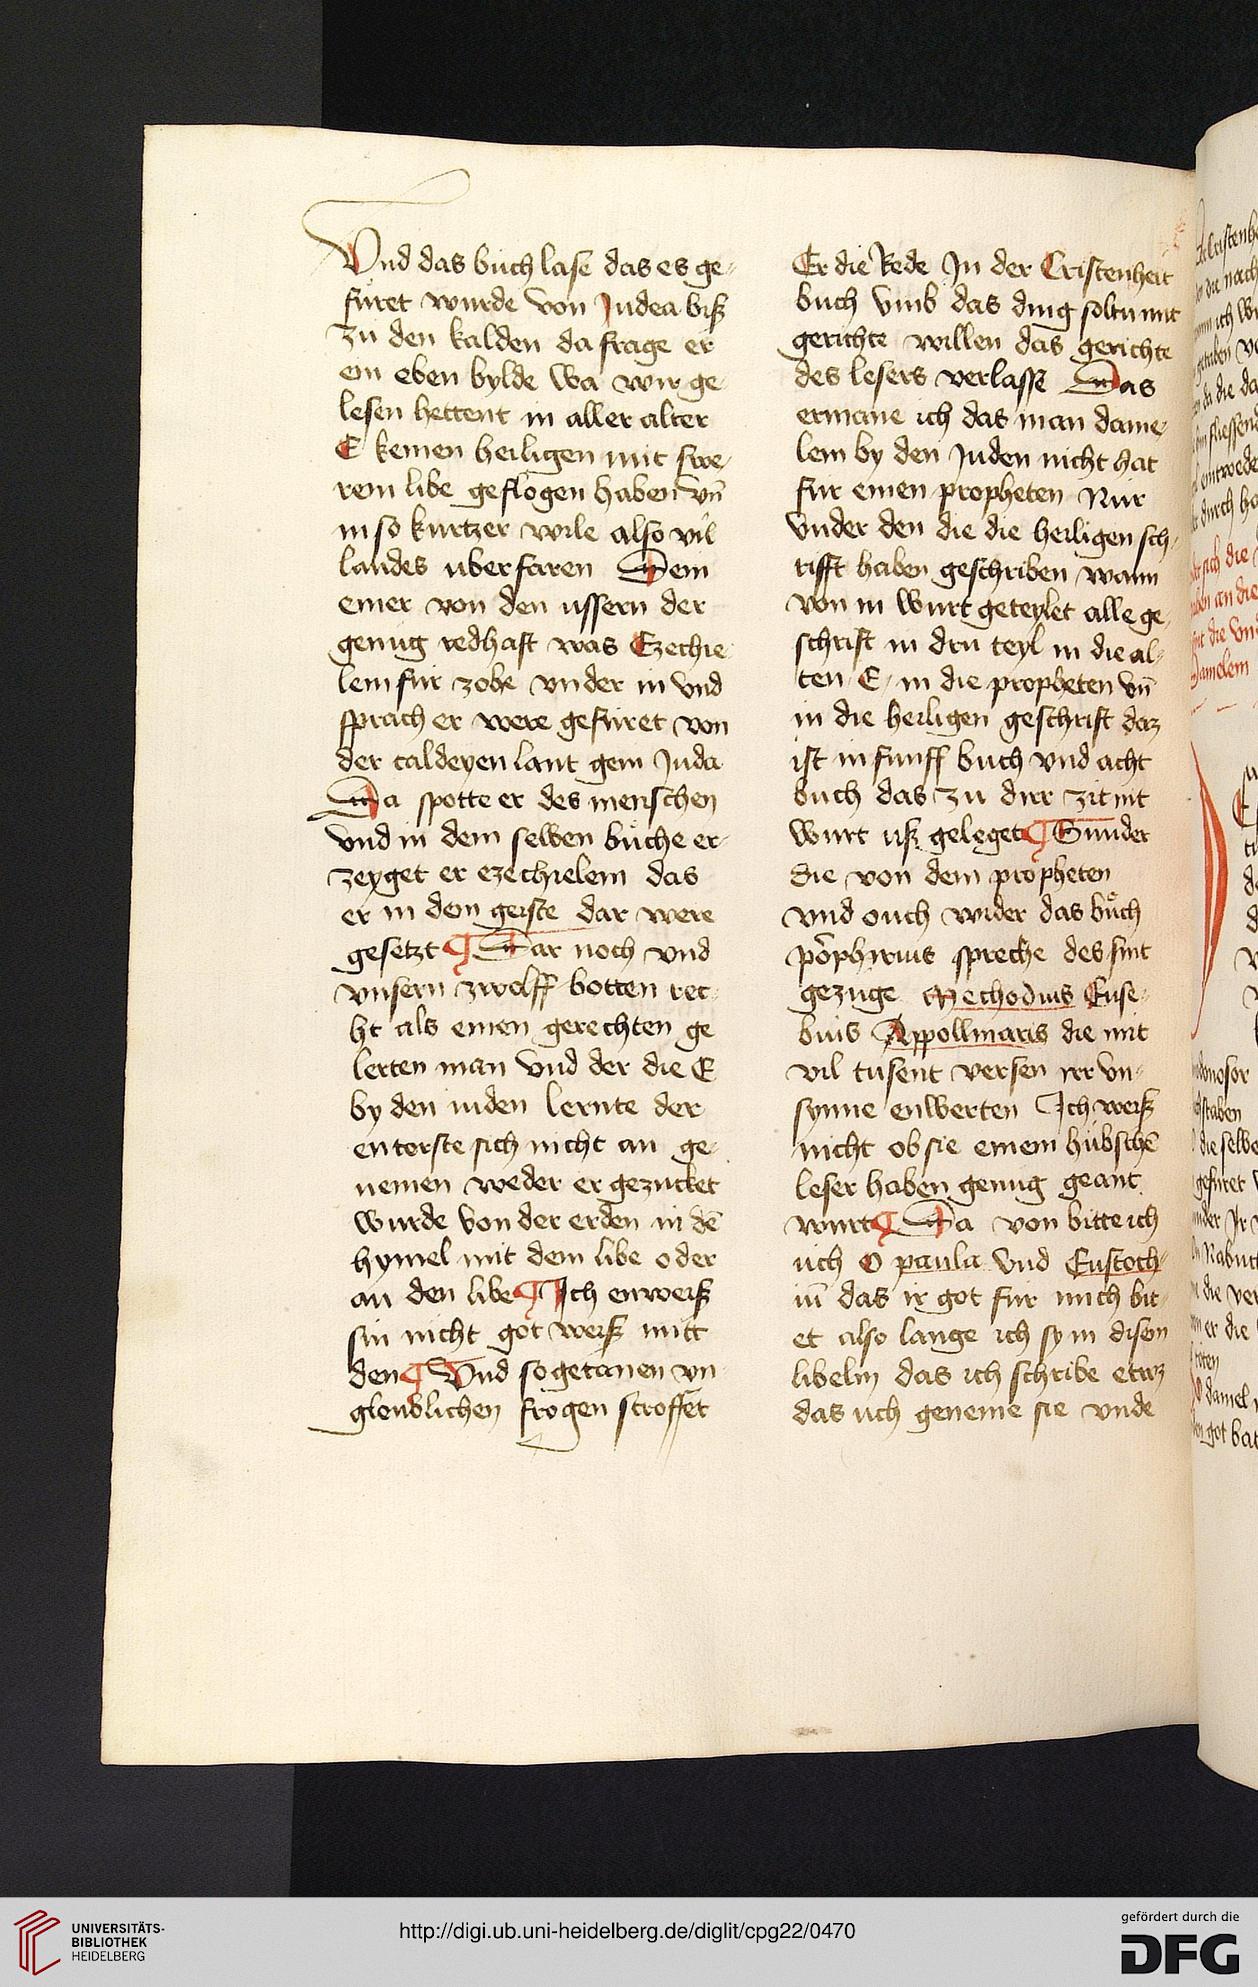 Vnd das buch lase das es ge-
füret wurde von Judea biß
zu den kalden da frage er
ein eben bylde wa wir ge-
lesen hettent in aller alter
E keinen heiligen mit swe-
rem libe geflogen haben vn̄
in so kurtzer wile also vil
landes uberfaren Dem
einer von den ussern der
genug redhaft was Ezechie
lem für zohe vnder in vnd
sprach er were gefüret von
der caldeyen lant gein Juda
Da spotte er des menschen
vnd in dem selben buche er-
zeyget er ezechielem das
er in dem geiste dar were
gesetzt ¶ Dar noch vnd
vnsern zwolff botten rec-
ht als einen gerechten ge
lerten man vnd der die E
by den iuden lernte der
entorste sich nicht an ge-
nemen weder er gezucket
wurde von der erden in dē
hymel mit dem libe oder
an den libe ¶ Ich enweiß
sin nicht got weiß mitt
den ¶ Vnd sogetanen vn
gloublichen frogen stroffet
Er die Rede In der Cristenheit
buch vmb das ding soltu mit
gerichte willen das gerichte
des lesers verlasse Das
ermane ich das man danie-
lem by den Juden nicht hat
für einen propheten Nür
Vnder den die die heiligen sch-
rifft haben geschriben wann
von in wurt geteylet alle ge-
schrift in dru teyl in die al-
ten E in die propheten vn̄
in die heiligen geschrift daz
ist in funff buch vnd acht
buch das zu dirr zit nit
wurt uß geleget ¶ Sunder
die von dem propheten
vnd ouch wider das buͦch
pōrphirius spreche des sint
gezuge Methodius Euse-
bius Appollinaris die mit
vil tusent versen irr vn-
synne enwerten Ich weiß
nicht ob sie einem hübschē
leser haben genug geant
wurt ¶ Da von bitte ich
uch O paula vnd Eustoch-
iū das ir got für mich bit-
et also lange ich sy in disen
libelin das ich schribe etwz
das uch geneme sie vnde
UNIVERSITÄTS-
BIBLIOTHEK
HEIDELBERG
http://digi.ub.uni-heidelberg.de/diglit/cpg22/0470
gefördert durch die
DFG